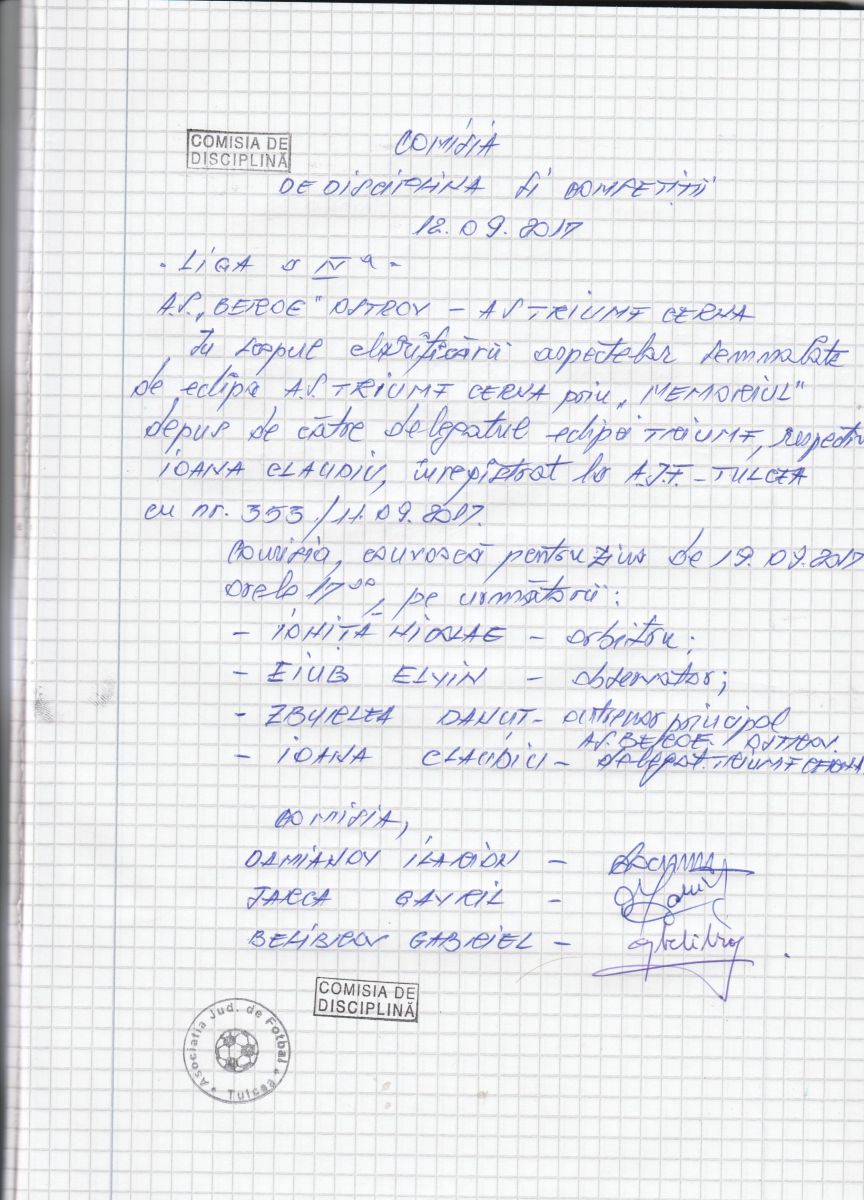 COMISIA DE
DISCIPLINĂ
COMISIA
DE DISCIPLINA SI COMPETIȚII
12.09.2017
- LIGA a IV a -
A.S. „BEROE" OSTROV – AS TRIUMF CERNA
În scopul clarificării aspectelor semnalate
de echipa A.S. TRIUMF CERNA prin „MEMORIUL"
depus de către delegatul echipei TRIUMF, respectiv
IOANA CLAUDIU, înregistrat la A.J.F. – TULCEA
cu nr. 353/11.09.2017.
Comisia, convoacă pentru ziua de 19.09.2017
orele 17 00, pe următorii:
– IONIȚA NICOLAE – arbitru;
– EIUB ELVIN – observator;
– ZBURLEA DANUT – antrenor principal
A.S. BEROE OSTROV.
– IOANA CLAUDIU – delegat TRIUMF CERNA
COMISIA,
DAMIANOV ILARION –
JARCA GAVRIL –
BELIBROV GABRIEL –
COMISIA DE
DISCIPLINĂ
Asociatia Jud. de Fotbal
Tulcea